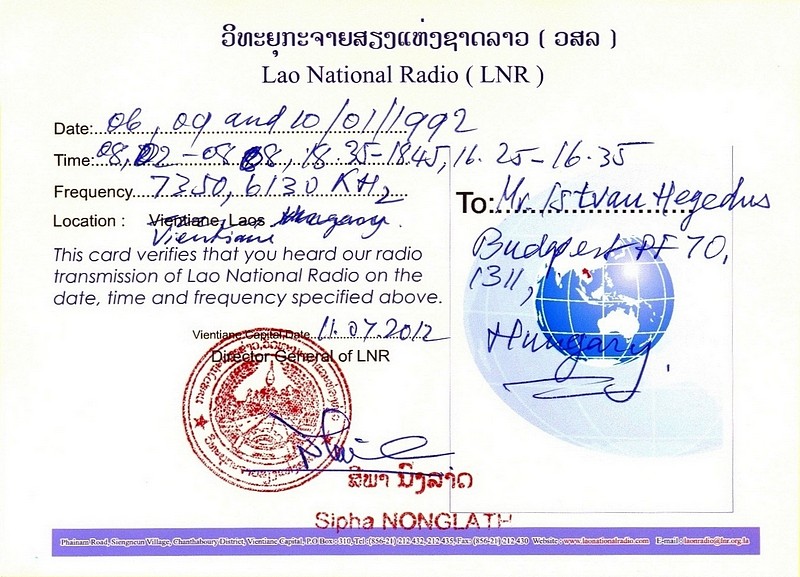 ວິທະຍຸກະຈາຍສຽງແຫ່ງຊາດລາວ ( ວສລ )
Lao National Radio ( LNR )
Date: 06, 09 and 10/01/1992
Time: 08,02 - 08 08, 18.35-18.45, 16.25-16.35
Frequency 7350, 6130 KHz
Location : Vientiane, Laos Hungary.
Vientiane
This card verifies that you heard our radio
transmission of Lao National Radio on the
date, time and frequency specified above.
Vientiane Capital,Date 11.07.2012
Director General of LNR
ສີພາ ນົງລາດ
Sipha NONGLATH
To: Mr. Istvan Hegedus
Budapest Pf 70,
1311,
Hungary.
Phainam Road, Siengneun Village, Chanthaboury District, Vientiane Capital, P.O Box : 310, Tel :(856-21) 212 432, 212 435, Fax: (856-21) 212 430 Website : www.laonationalradio.com E-mail : laonradio@lnr.org.la